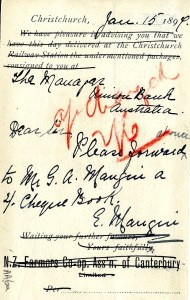 Christchurch, Jan. 15 1898
We have pleasure in advising you that we
have this day delivered at the Christchurch
Railway Station the undermentioned packages,
consigned to you at
The Manager
Union Bank
Australia
Dear Sir
Please forward
to Mr G. A. Mangin a
£ Cheque Book
E. Mangin
Waiting your further
Yours faithfully,
N.Z. Farmers Co-op. Ass'n. of Canterbury
Limited
Per